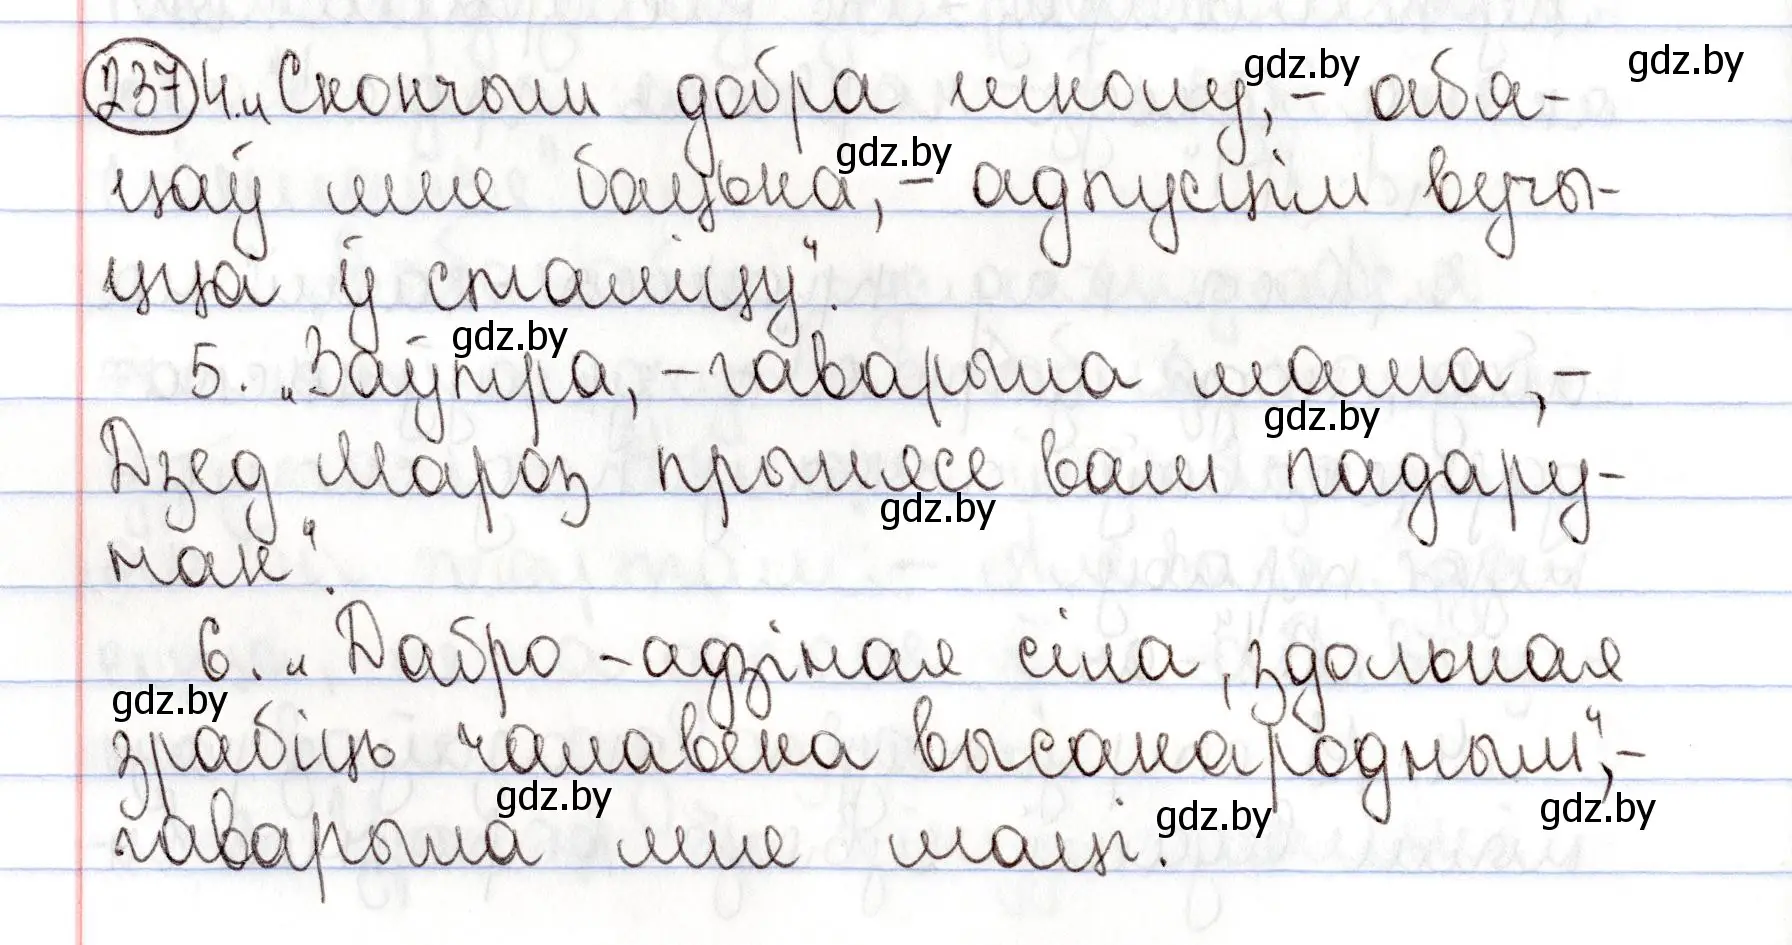 237 4. „Скончыш добра школу, – абя-
gdz.by gdz.by
цаў мне бацька, – адпусцім вучы-
gdz.by
цца ў сталіцу“.
5. „Заўтра, – гаварыла мама, –
gdz.by
gdz.by
Дзед Мароз прынясе вам падару-
gdz.by
нак“.
6. „Дабро – адзіная сіла, здольная
gdz.by
зрабіць чалавека высакародным“, –
gdz.by gdz.by gdz.by
гаварыла мне маці.